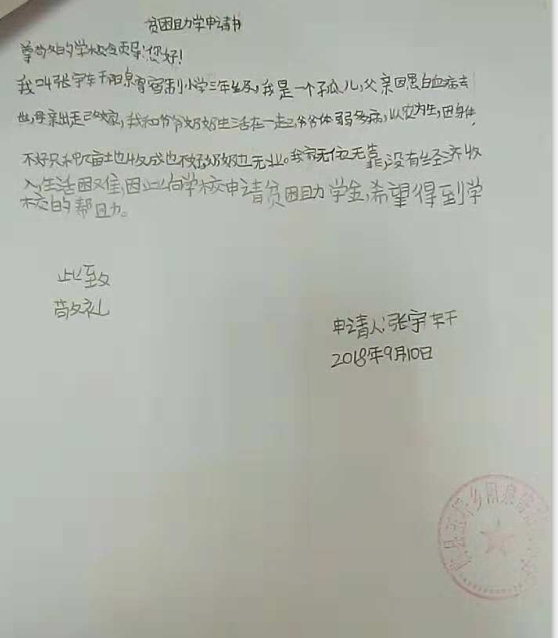 贫困助学申请书
尊敬的学校领导:您好!
我叫张宇轩阳泉寄宿制小学三年级,我是一个孤儿,父亲因患白血病去
世,母亲出走已改嫁,我和爷爷奶奶生活在一起,爷爷体弱多病,以农为生,因身体
不好只种几亩地收成也不好奶奶也无业。我家无依无靠,没有经济收
入生活困难,因此向学校申请贫困助学金,希望得到学
校的帮助。
此致
敬礼
申请人:张宇轩
2018年9月10日